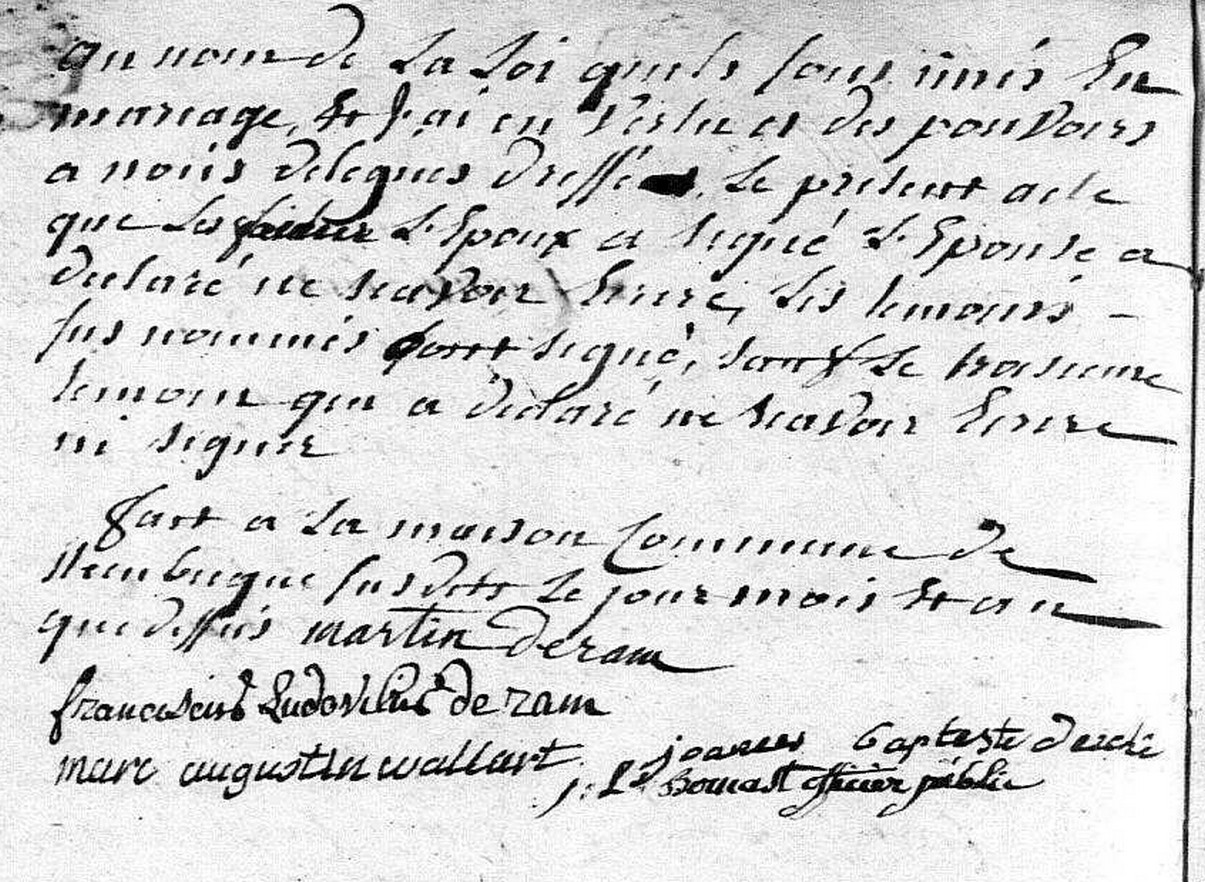 au nom de La Loi quils sont unis En
mariage, Et J'ai en Vertu et des pouvoirs
a nous delegues dressé Le present acte
que Les L'Epoux a signé L'Epouse a
declaré ne scavoir Ecrire, Les temoins -
sus nommés sont signé, sauf Le troisieme
temoin qui a declaré ne scavoir Ecrire
ni signer
fait a La maison Commune de
steenbeque susdit Le jour mois Et an
que dessus martin deram
franciscus Ludovicus de ram
joannes baptiste
marc augustin wallart
officier public